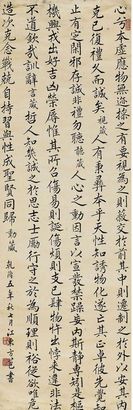 心兮本虛應物無迹操之有要視為之則蔽交於前其中則遷制之於外以安其內
克己復禮久而誠矣視箴人有秉彝本乎天性知誘物化遂亡其正卓彼先覺知
止有定閑邪存誠非禮勿聽聽箴人心之動因言以宣發禁躁妄內斯靜專矧是樞
機興戎出好吉凶榮辱惟其所召傷易則誕傷煩則支己肆物忤出悖來違非法
不道欽哉訓辭言箴哲人知幾誠之於思志士厲行守之於為順理則裕從欲惟危
造次克念戰兢自持習與性成聖賢同歸動箴乾隆五年秋七月江東方苞書